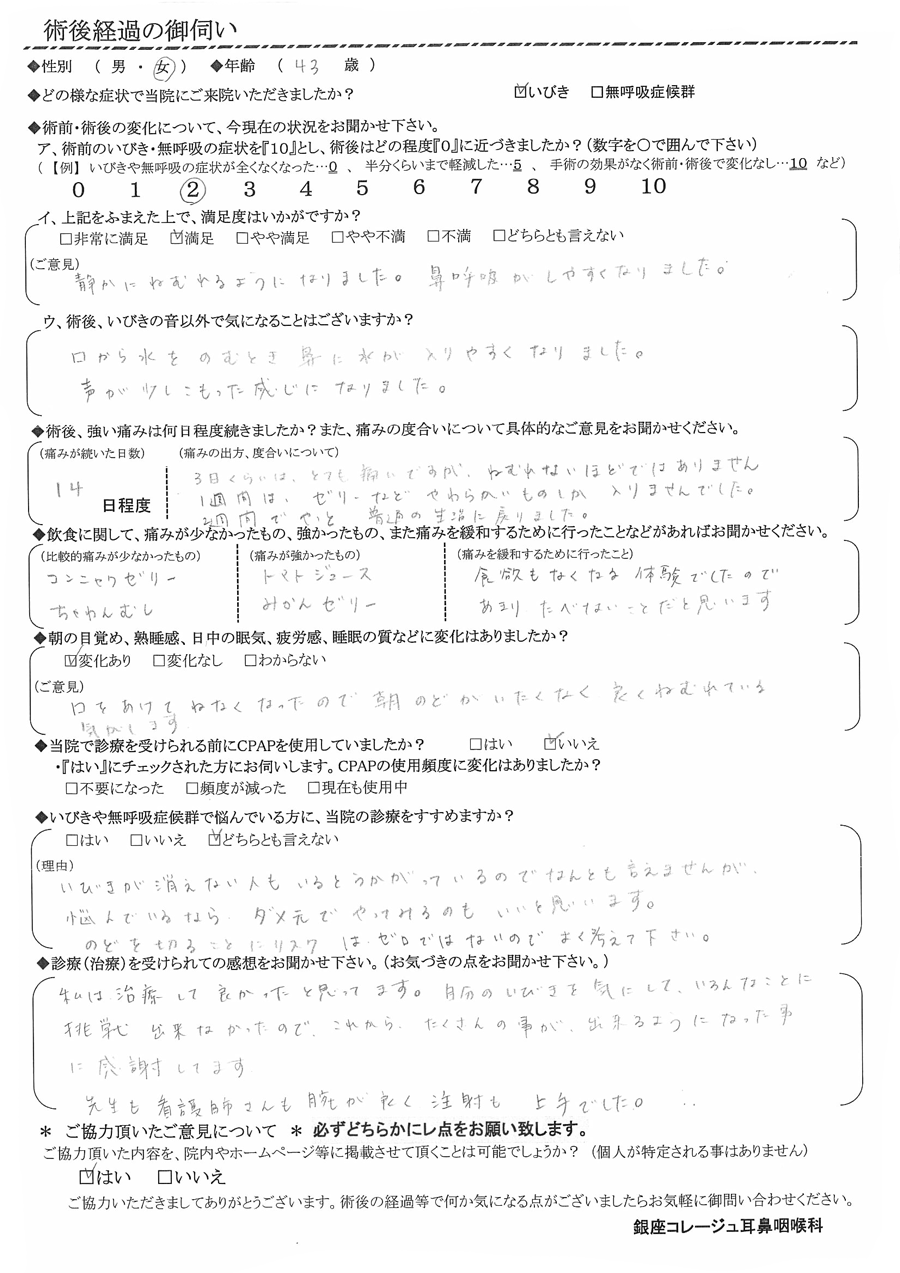 術後経過の御伺い
◆性別 （ 男 ・ 女 ） ◆年齢 （ 43 歳 ）
◆どの様な症状で当院にご来院いただきましたか？ ☑いびき □無呼吸症候群
◆術前・術後の変化について、今現在の状況をお聞かせ下さい。
ア、術前のいびき・無呼吸の症状を『10』とし、術後はどの程度『0』に近づきましたか？（数字を〇で囲んで下さい）
（【例】 いびきや無呼吸の症状が全くなくなった…0 、 半分くらいまで軽減した…5 、 手術の効果がなく術前・術後で変化なし…10 など）
0 1 2 3 4 5 6 7 8 9 10
イ、上記をふまえた上で、満足度はいかがですか？
□非常に満足 ☑満足 □やや満足 □やや不満 □不満 □どちらとも言えない
（ご意見）
静かにねむれるようになりました。 鼻呼吸がしやすくなりました。
ウ、術後、いびきの音以外で気になることはございますか？
口から水をのむとき鼻に水が入りやすくなりました。
声が少しこもった感じになりました。
◆術後、強い痛みは何日程度続きましたか？また、痛みの度合いについて具体的なご意見をお聞かせください。
（痛みが続いた日数） （痛みの出方、度合いについて）
3日くらいは、とても痛いですが、ねむれないほどではありません
14 日程度 1週間は、ゼリーなどやわらかいものしか入りませんでした。
2週間でやっと普通の生活に戻りました。
◆飲食に関して、痛みが少なかったもの、強かったもの、また痛みを緩和するために行ったことなどがあればお聞かせください。
（比較的痛みが少なかったもの） （痛みが強かったもの） （痛みを緩和するために行ったこと）
コンニャクゼリー トマトジュース 食欲もなくなる体験でしたので
ちゃわんむし みかんゼリー あまりたべないことだと思います
◆朝の目覚め、熟睡感、日中の眠気、疲労感、睡眠の質などに変化はありましたか？
☑変化あり □変化なし □わからない
（ご意見）
口をあけてねなくなったので朝のどがいたくなく良くねむれている
気がします
◆当院で診療を受けられる前にCPAPを使用していましたか？ □はい ☑いいえ
・『はい』にチェックされた方にお伺いします。CPAPの使用頻度に変化はありましたか？
□不要になった □頻度が減った □現在も使用中
◆いびきや無呼吸症候群で悩んでいる方に、当院の診療をすすめますか？
□はい □いいえ ☑どちらとも言えない
（理由）
いびきが消えない人もいるとうかがっているのでなんとも言えませんが、
悩んでいるなら、ダメ元でやってみるのもいいと思います。
のどを切ることにリスクはゼロではないのでよく考えて下さい。
◆診療（治療）を受けられての感想をお聞かせ下さい。（お気づきの点をお聞かせ下さい。）
私は治療して良かったと思ってます。自分のいびきを気にして、いろんなことに
挑戦出来なかったので、これから、たくさんの事が、出来るようになった事
に感謝してます
先生も看護師さんも腕が良く注射も上手でした。
＊ ご協力頂いたご意見について ＊ 必ずどちらかにレ点をお願い致します。
ご協力頂いた内容を、院内やホームページ等に掲載させて頂くことは可能でしょうか？ （個人が特定される事はありません）
☑はい □いいえ
ご協力いただきましてありがとうございます。術後の経過等で何か気になる点がございましたらお気軽に御問い合わせください。
銀座コレージュ耳鼻咽喉科